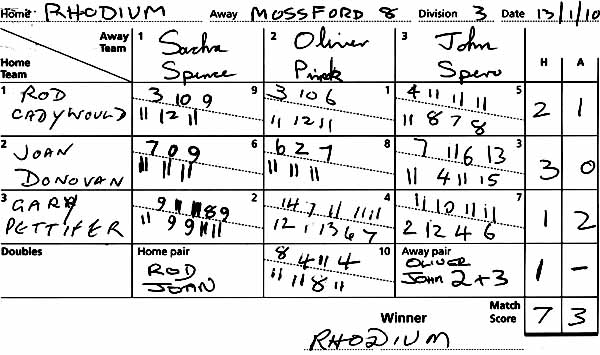 Home RHODIUM Away MOSSFORD 8 Division 3 Date 13/1/10
Away Team 1 Sacha 2 Oliver 3 John H A
Home Team Spence Spero
1 ROD 3 10 9 9 3 10 6 1 4 11 11 11 5
CADYWOULD 11 12 11 11 12 11 11 8 7 8 2 1
2 JOAN 7 0 9 6 6 2 7 8 7 11 6 13 3
DONOVAN 11 11 11 11 11 11 11 4 11 15 3 0
3 GARY 2 14 7 11 11 11 4 11 10 11 11 7
PETTIFER 12 13 6 7 2 12 4 6 1 2
Doubles Home pair 8 4 11 4 10 Away pair
ROD 11 11 8 11 OLIVER 1 -
JOAN John 2+3
Winner Match Score 7 3
RHODIUM